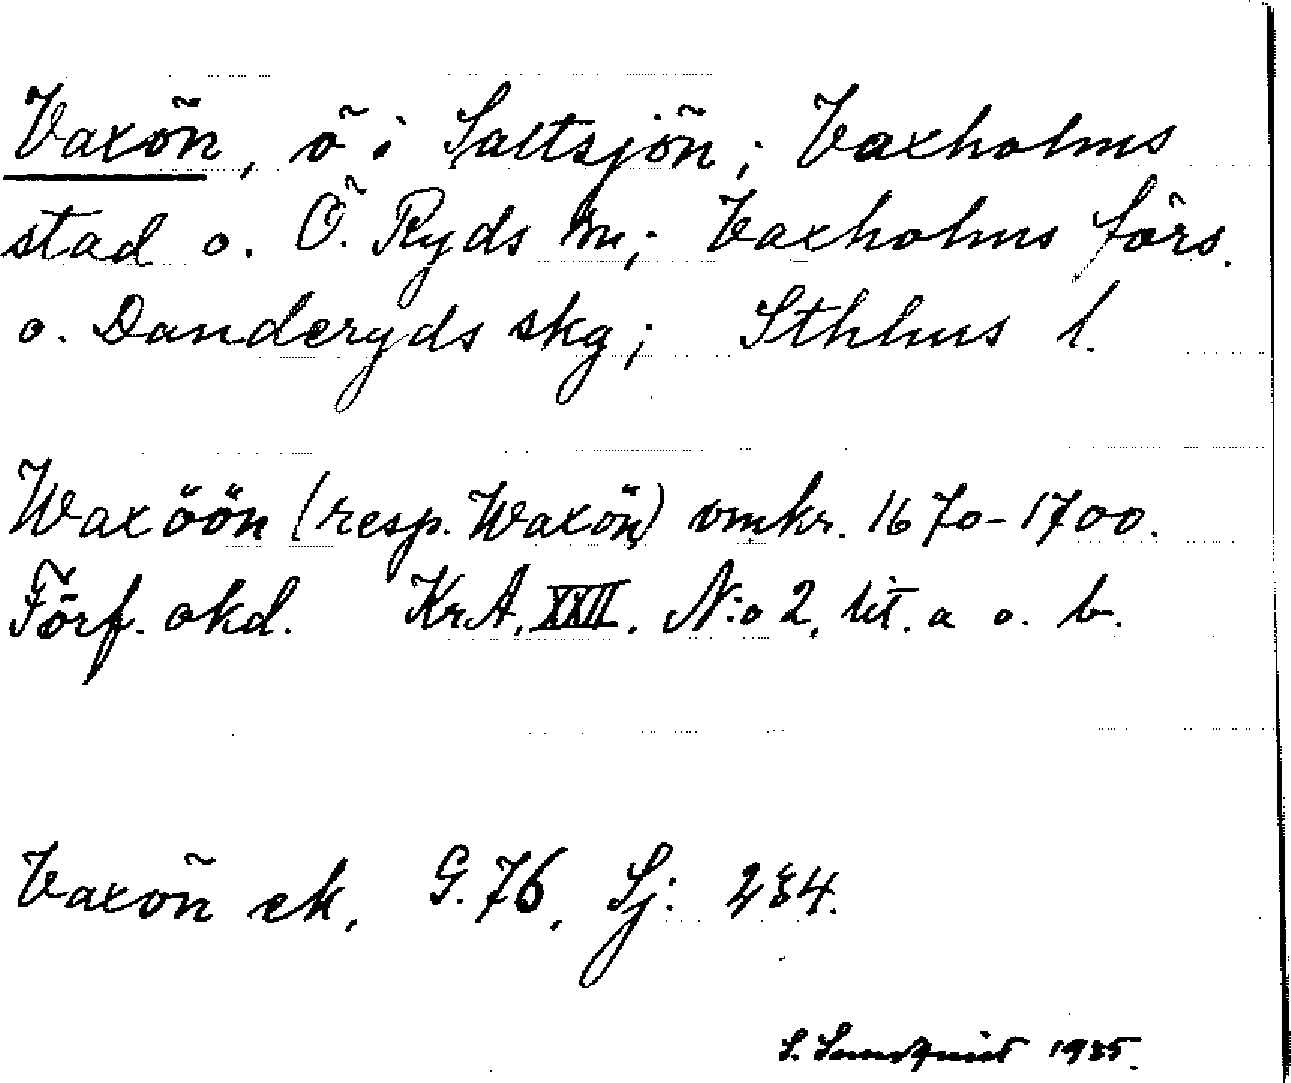 Vaxön, ö i Saltsjön; Vaxholms
stad o. Ö. Ryds sn; Vaxholms förs.
o. Danderyds skg; Sthlms l.
Waxöön (resp. Waxön) omkr. 1670-1700.
Förf. okd. KrA. XXII. N:o 2, lit. a o. b.
Vaxön ek. G. 76, Sj: 234.
S. Sundquist 1935.